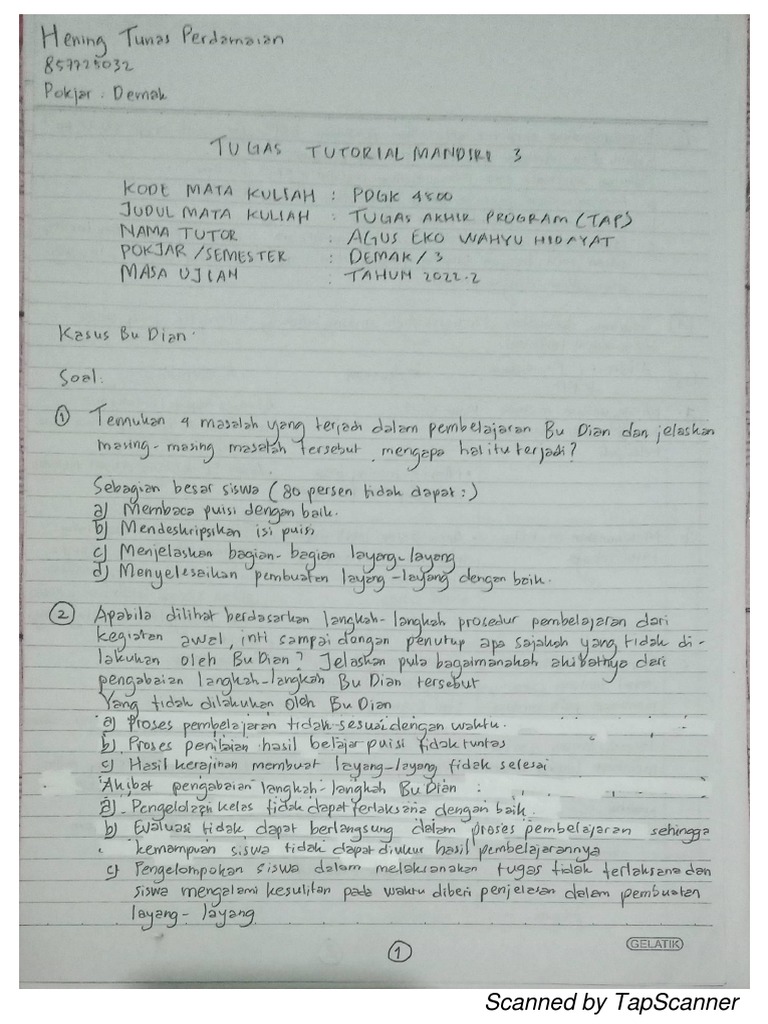 Hening Tunas Perdamaian
857725032
Pokjar : Demak
TUGAS TUTORIAL MANDIRI 3
KODE MATA KULIAH : PDGK 4500
JUDUL MATA KULIAH : TUGAS AKHIR PROGRAM (TAP)
NAMA TUTOR : AGUS EKO WAHYU HIDAYAT
POKJAR / SEMESTER : DEMAK / 3
MASA UJIAN : TAHUN 2022.2
Kasus Bu Dian.
Soal:
① Temukan 4 masalah yang terjadi dalam pembelajaran Bu Dian dan jelaskan
masing-masing masalah tersebut mengapa hal itu terjadi?
Sebagian besar siswa (80 persen tidak dapat :)
a) Membaca puisi dengan baik.
b) Mendeskripsikan isi puisi
c) Menjelaskan bagian-bagian layang-layang
d) Menyelesaikan pembuatan layang-layang dengan baik.
② Apabila dilihat berdasarkan langkah-langkah prosedur pembelajaran dari
kegiatan awal, inti sampai dengan penutup apa sajakah yang tidak di-
lakukan oleh Bu Dian? Jelaskan pula bagaimanakah akibatnya dari
pengabaian langkah-langkah Bu Dian tersebut
Yang tidak dilakukan oleh Bu Dian
a) Proses pembelajaran tidak sesuai dengan waktu.
b) Proses penilaian hasil belajar puisi tidak tuntas
c) Hasil kerajinan membuat layang-layang tidak selesai
Akibat pengabaian langkah-langkah Bu Dian :
a). Pengelolaan kelas tidak dapat terlaksana dengan baik.
b) Evaluasi tidak dapat berlangsung dalam proses pembelajaran sehingga
kemampuan siswa tidak dapat diukur hasil pembelajarannya
c) Pengelompokan siswa dalam melaksanakan tugas tidak terlaksana dan
siswa mengalami kesulitan pada waktu diberi penjelasan dalam pembuatan
layang-layang
①
GELATIK
Scanned by TapScanner